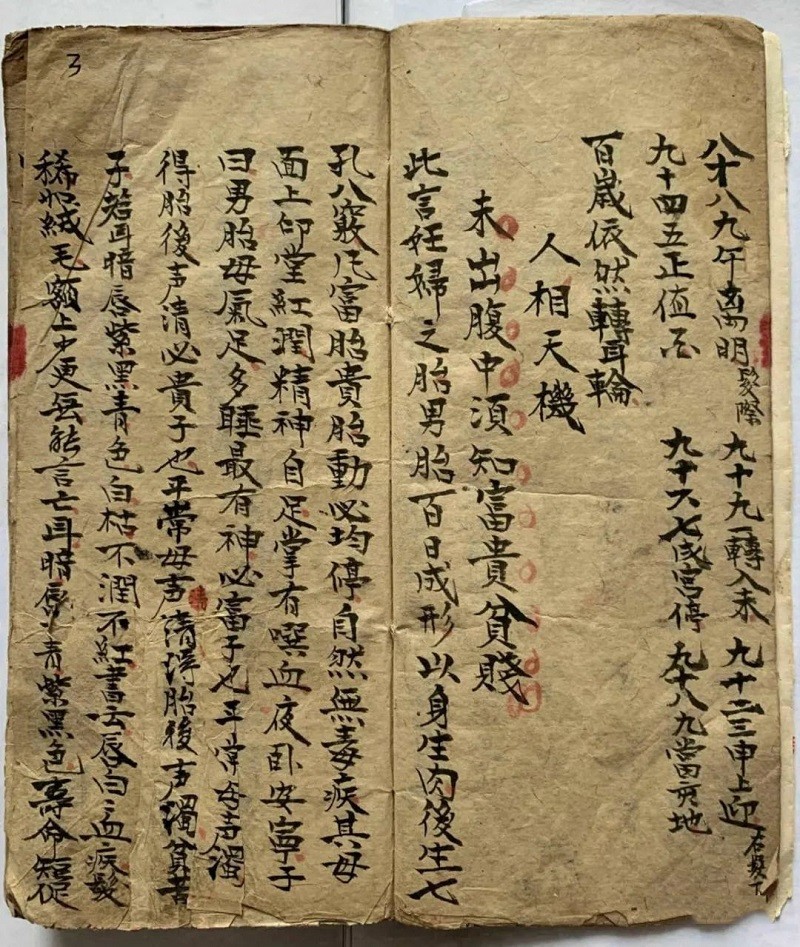 3
八十八九午离明 髮際 九十九一轉入未 九十二三申上迎 右髮下
九十四五正值酉 九十六七戌宮停 九十八九當亥地
百歲依然轉耳輪
人相天機
未出腹中須知富貴貧賤
此言妊婦之胎男胎百日成形以身生肉後生七
孔八竅凡富胎貴胎動必均停自然無毒疾其母
面上印堂紅潤精神自足掌有噀血夜卧安寧子
曰男胎母氣足多睡最有神必富子也平常母声濁
得胎後声清必貴子也平常母声清得胎後声濁貧苦
子若耳暗唇紫黑青色白枯不潤不紅書云唇白血疾髮
稀如絨毛額上少更無能言亡耳暗唇青紫黑色壽命短促